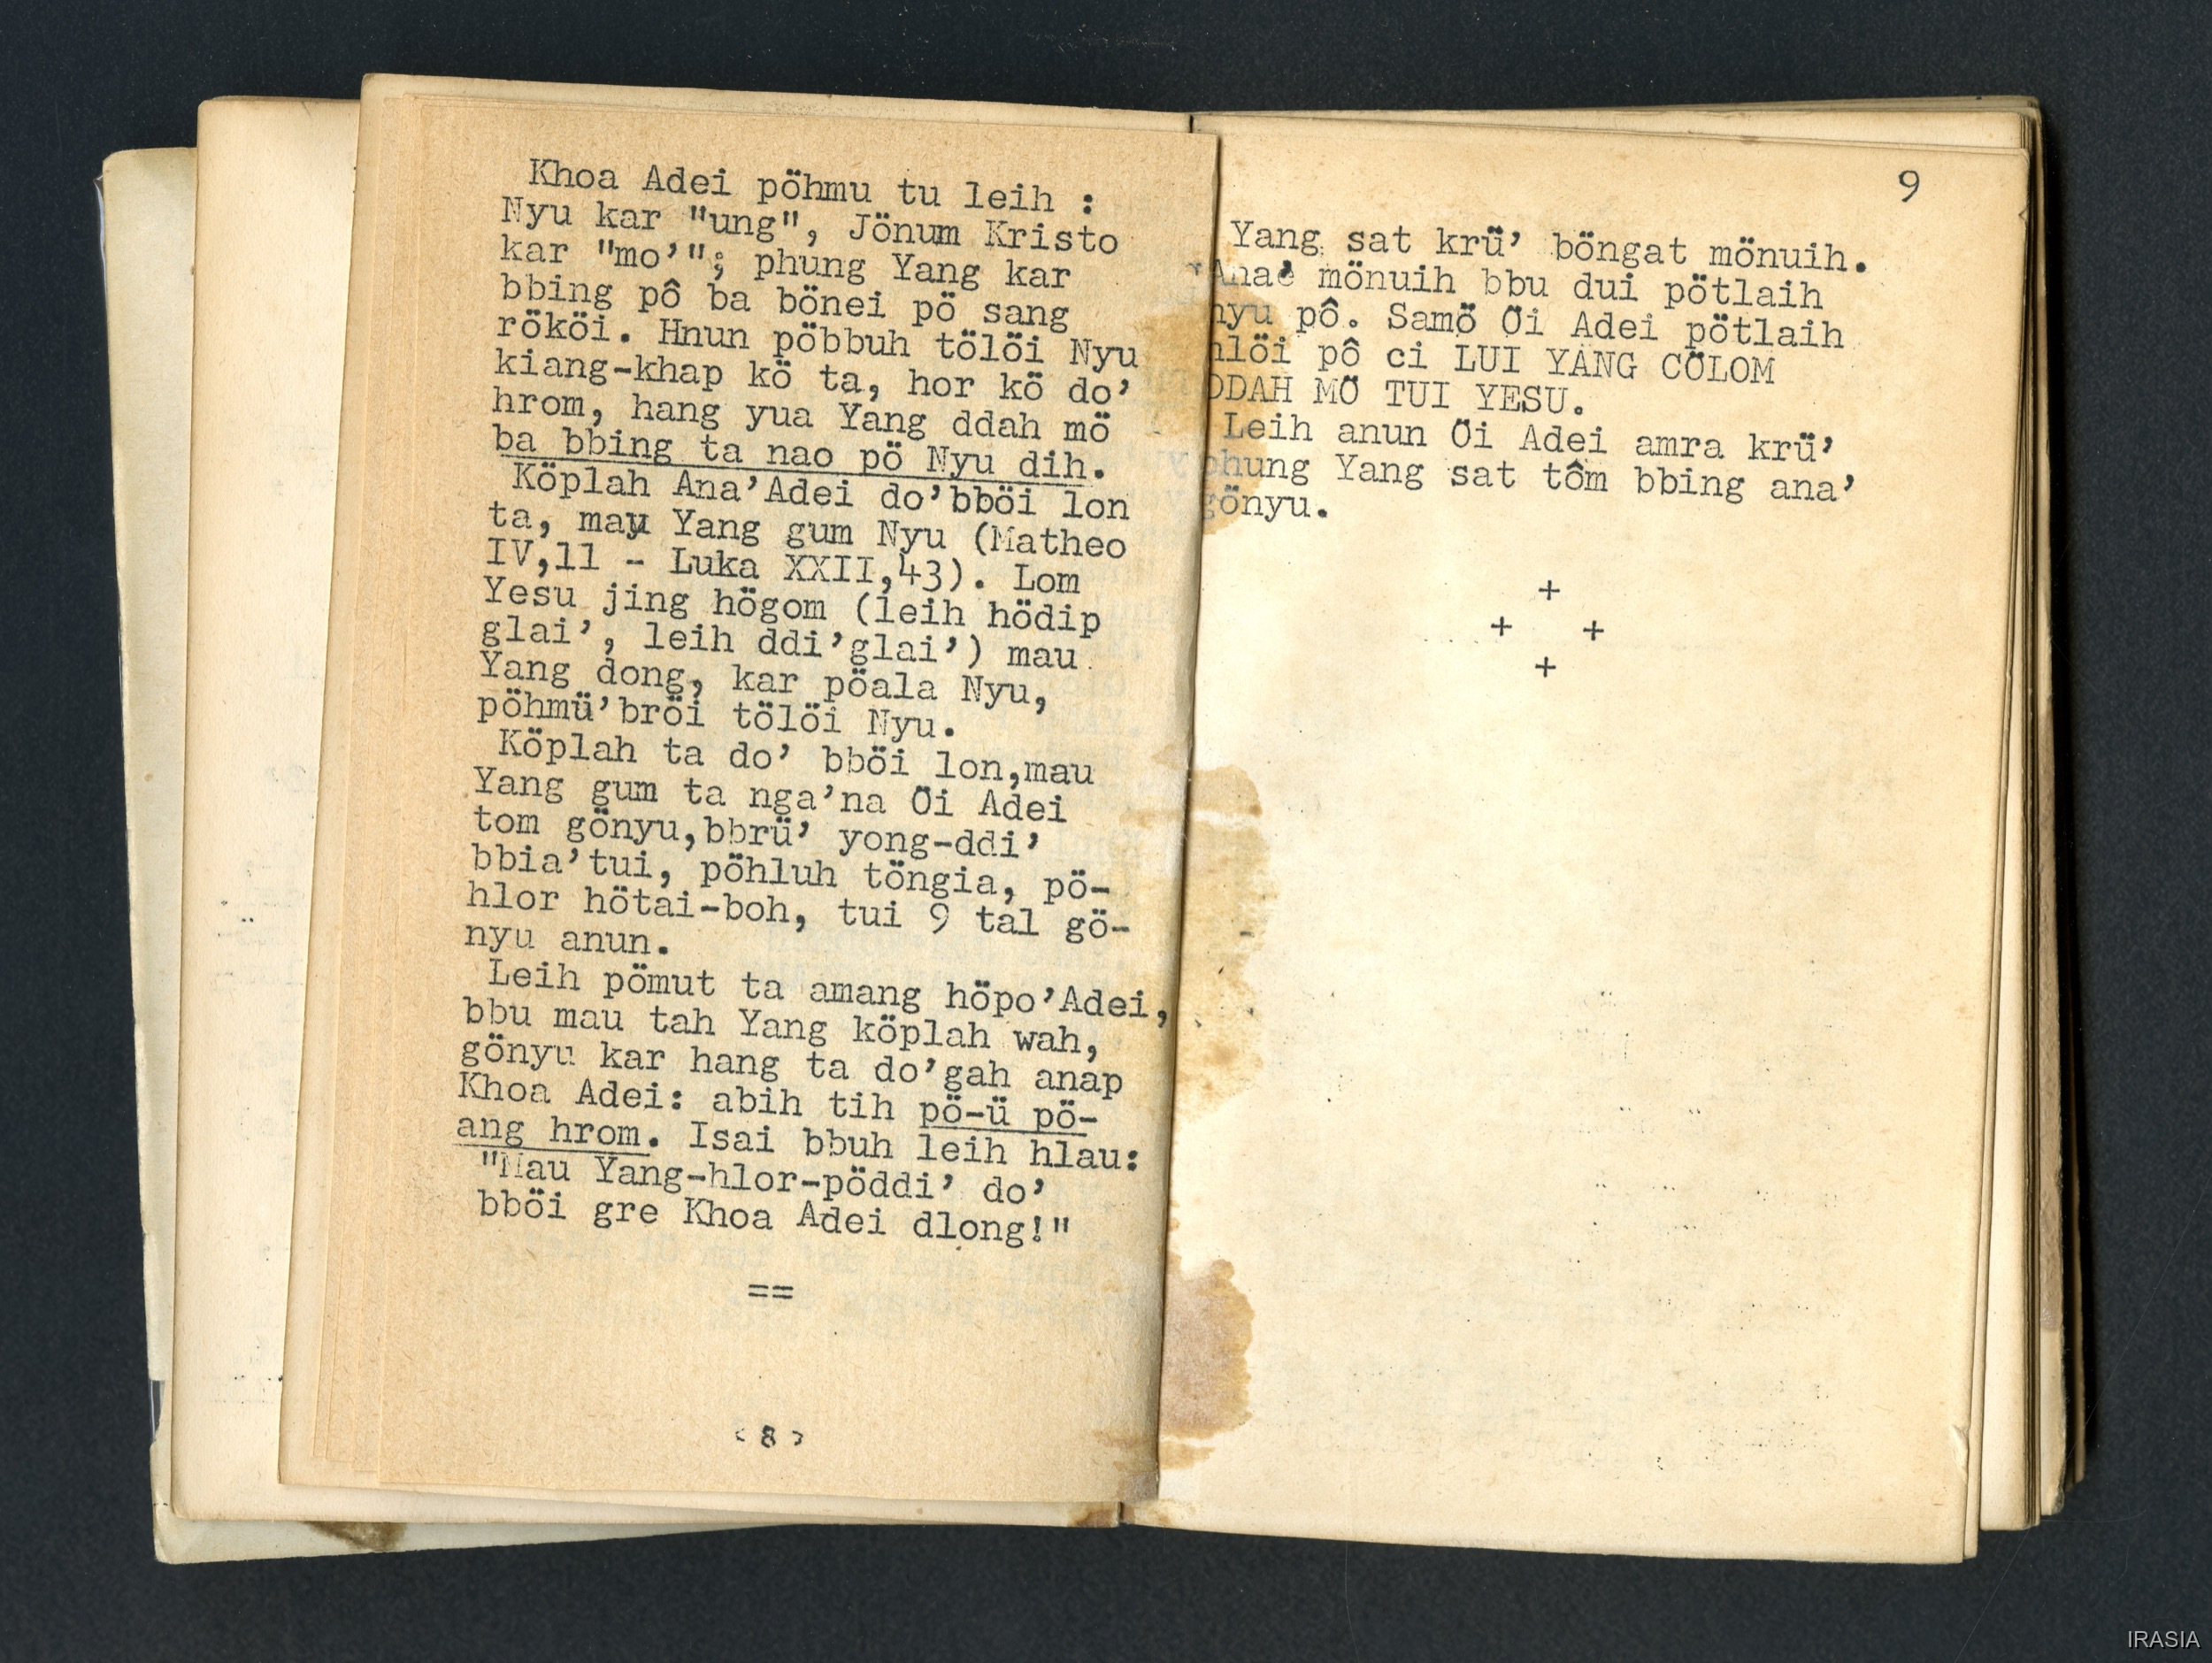 Khoa Adei pöhmu tu leih :
Nyu kar "ung", Jönum Kristo
kar "mo’"; phung Yang kar
bbing pô ba bönei pö sang
rököi. Hnun pöbbuh tölöi Nyu
kiang-khap kö ta, hor kö do’
hrom, hang yua Yang ddah mö
ba bbing ta nao pö Nyu dih.
Köplah Ana’Adei do’bböi lon
ta, mau Yang gum Nyu (Matheo
IV,11 - Luka XXII,43). Lom
Yesu jing högom (leih hödip
glai’, leih ddi’glai’) mau
Yang dong, kar pöala Nyu,
pöhmü’bröi tölöi Nyu.
Köplah ta do’ bböi lon,mau
Yang gum ta nga’na Öi Adei
tom gönyu,bbrü’ yong-ddi’
bbia’tui, pöhluh töngia, pö-
hlor hötai-boh, tui 9 tal gö-
nyu anun.
Leih pömut ta amang höpo’Adei,
bbu mau tah Yang köplah wah,
gönyu kar hang ta do’gah anap
Khoa Adei: abih tih pö-ü pö-
ang hrom. Isai bbuh leih hlau:
"Mau Yang-hlor-pöddi’ do’
bböi gre Khoa Adei dlong!"
==
< 8 >
9
Yang sat krü’ böngat mönuih.
mönuih bbu dui pötlaih
pô. Samö Öi Adei pötlaih
pô ci LUI YANG CÖLOM
MÖ TUI YESU.
Leih anun Öi Adei amra krü’
phung Yang sat tôm bbing ana’
gönyu.
+
+ +
+
IRASIA